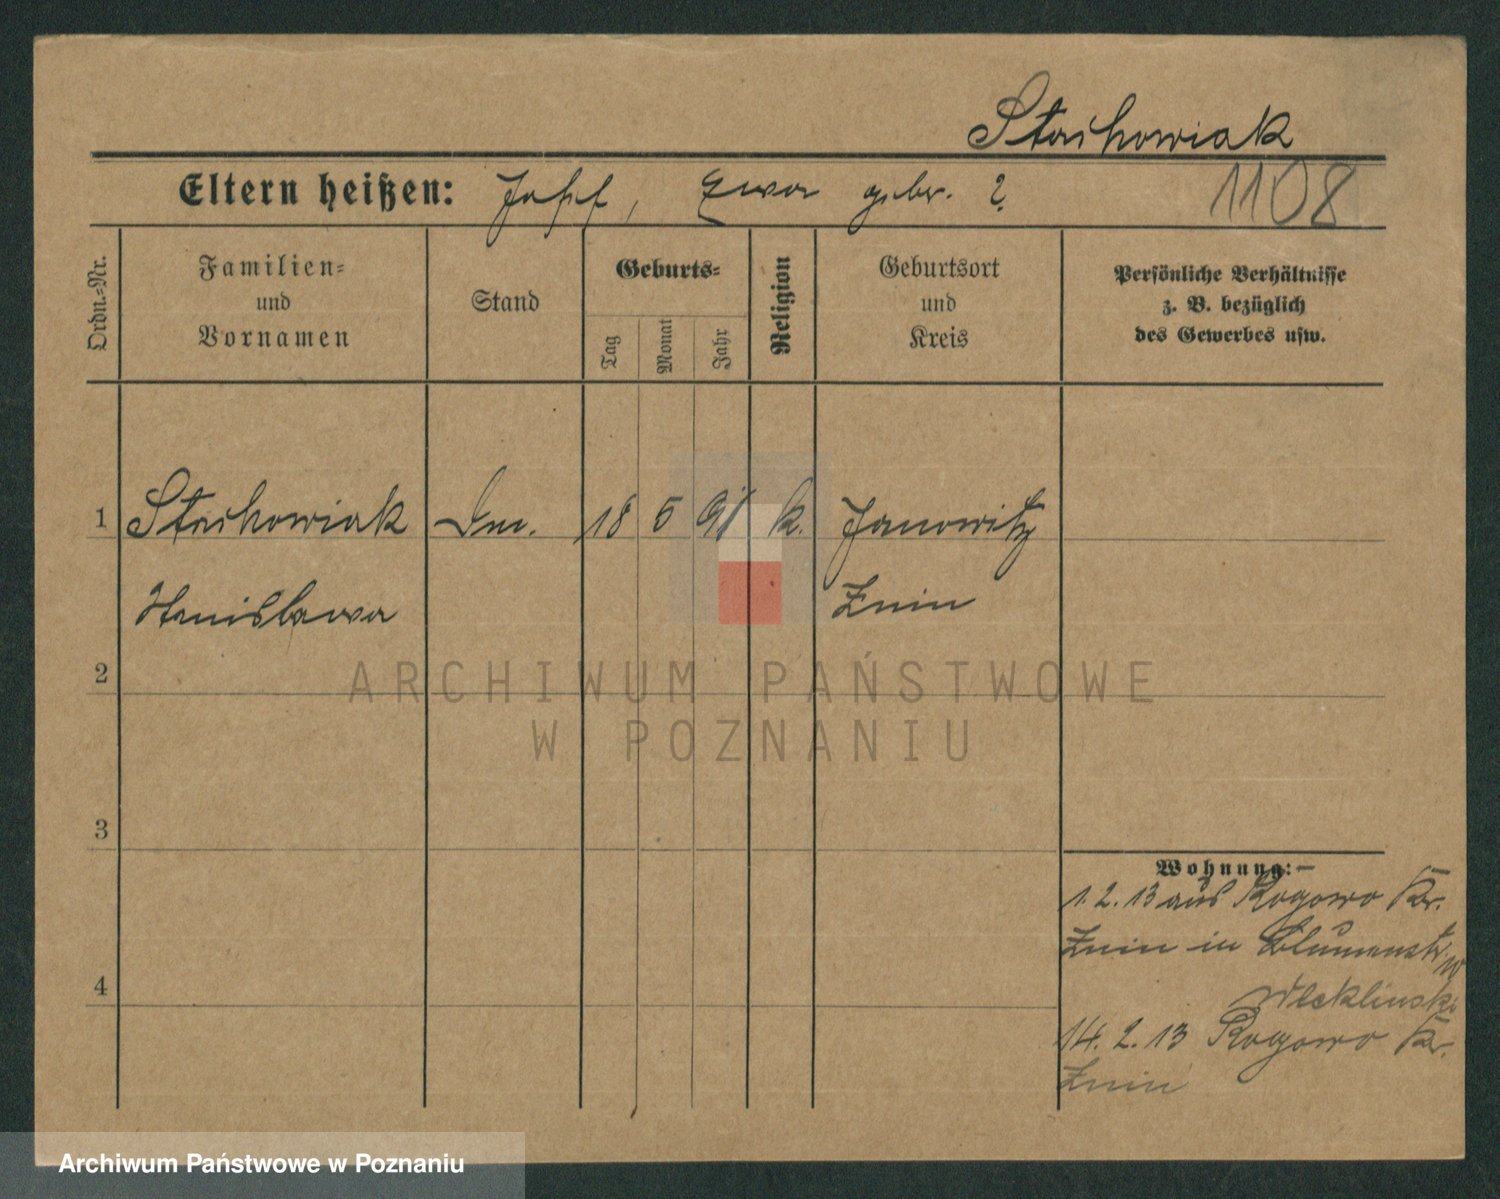 Stachowiak
Eltern heißen: Josef, Ewa gebr. ?
1108
Ordn.=Nr.
Familien=
und
Vornamen
Stand
Geburts=
Tag
Monat
Jahr
Religion
Geburtsort
und
Kreis
Persönliche Verhältnisse
z. B. bezüglich
des Gewerbes usw.
1 Stachowiak 18 5 91 k. Janowitz
Stanislawa Znin
2
ARCHIWUM PAŃSTWOWE
W POZNANIU
3
Wohnung:
1.2.13 aus Rogowo Kr.
Znin in Blumenstr.
4
14.2.13 Rogowo Kr.
Znin
Archiwum Państwowe w Poznaniu